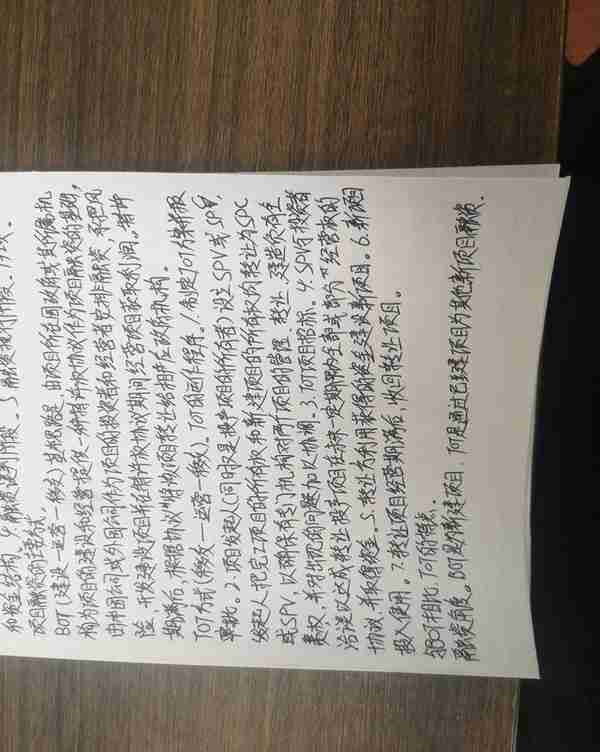 和资金结构。4.融资谈判阶段。5.融资执行阶段，分为。
项目融资的主要模式
BOT（建设一运营一移交）其思路是，由项目所在国政府或其所属机
构为项目的建设和经营提供一种特许权协议作为项目融资的基础，
由本国公司或外国公司作为项目的投资者和经营者安排融资，承担风
险，开发建设项目并在特许权协议期间经营项目获取利润。特许
期满后，根据协议将该项目转让给相应政府机构。
TOT方式（移交一运营一移交）。TOT的运作程序：1.制定TOT方案并报
审批。2.项目发起人（同时又是投产项目的所有者）设立SPV或SPC，
发起人把完工项目的所有权和新建项目的所有权均转让为SPC
或SPV，以确保有专门机构对两个项目的管理、转让、建造负有全
责权，并对出现的问题加以协调。3.TOT项目招标。4.SPV与投资者
洽谈以达成转让投产项目在未来一定期限内全部或部分经营权的
协议，并取得资金。5.转让方利用获得的资金建设新项目。6.新项目
投入使用。7.转让项目经营期满后，收回转让项目。
和BOT相比，TOT的特点。
融资角度。BOT是为新建项目，TOT是通过已建项目为其他新项目融资。